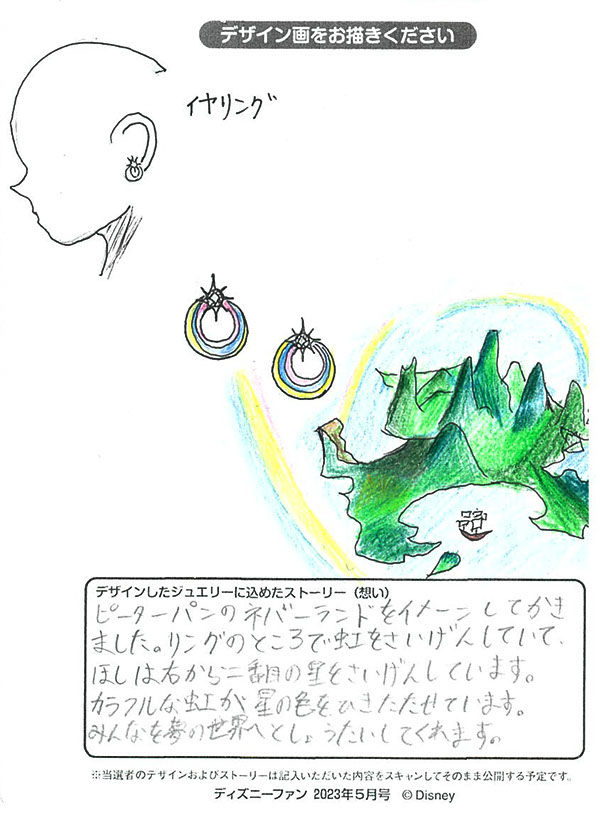 デザイン画をお描きください
イヤリング
デザインしたジュエリーに込めたストーリー（想い）
ピーターパンのネバーランドをイメージしてかき
ました。リングのところで虹をさいげんしていて、
ほしは右から二番目の星をさいげんしています。
カラフルな虹が星の色をひきたたせています。
みんなを夢の世界へとしょうたいしてくれます。
※当選者のデザインおよびストーリーは記入いただいた内容をスキャンしてそのまま公開する予定です。
ディズニーファン 2023年5月号 ©Disney